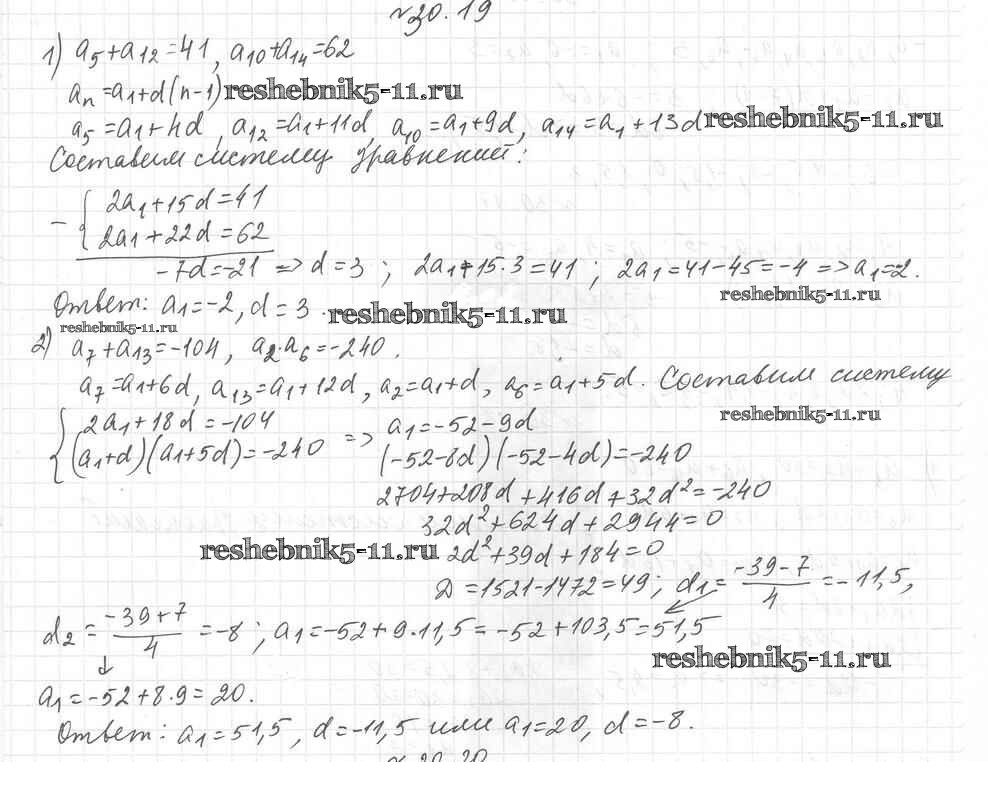 №30.19
1) a₅+a₁₂=41, a₁₀+a₁₄=62
aₙ=a₁+d(n-1) reshebnik5-11.ru
a₅=a₁+4d, a₁₂=a₁+11d, a₁₀=a₁+9d, a₁₄=a₁+13d reshebnik5-11.ru
Составим систему уравнений:
- { 2a₁+15d=41
2a₁+22d=62
-7d=-21 => d=3; 2a₁+15·3=41; 2a₁=41-45=-4 => a₁=-2.
reshebnik5-11.ru
Ответ: a₁=-2, d=3. reshebnik5-11.ru
reshebnik5-11.ru
2) a₇+a₁₃=-104, a₂·a₆=-240.
a₇=a₁+6d, a₁₃=a₁+12d, a₂=a₁+d, a₆=a₁+5d. Составим систему
reshebnik5-11.ru
{ 2a₁+18d=-104 => a₁=-52-9d
(a₁+d)(a₁+5d)=-240 (-52-8d)(-52-4d)=-240
2704+208d+416d+32d²=-240
32d²+624d+2944=0
reshebnik5-11.ru 2d²+39d+184=0
D=1521-1472=49; d₁=(-39-7)/4=-11,5,
d₂=(-39+7)/4=-8; a₁=-52+9·11,5=-52+103,5=51,5
reshebnik5-11.ru
a₁=-52+8·9=20.
Ответ: a₁=51,5, d=-11,5 или a₁=20, d=-8.